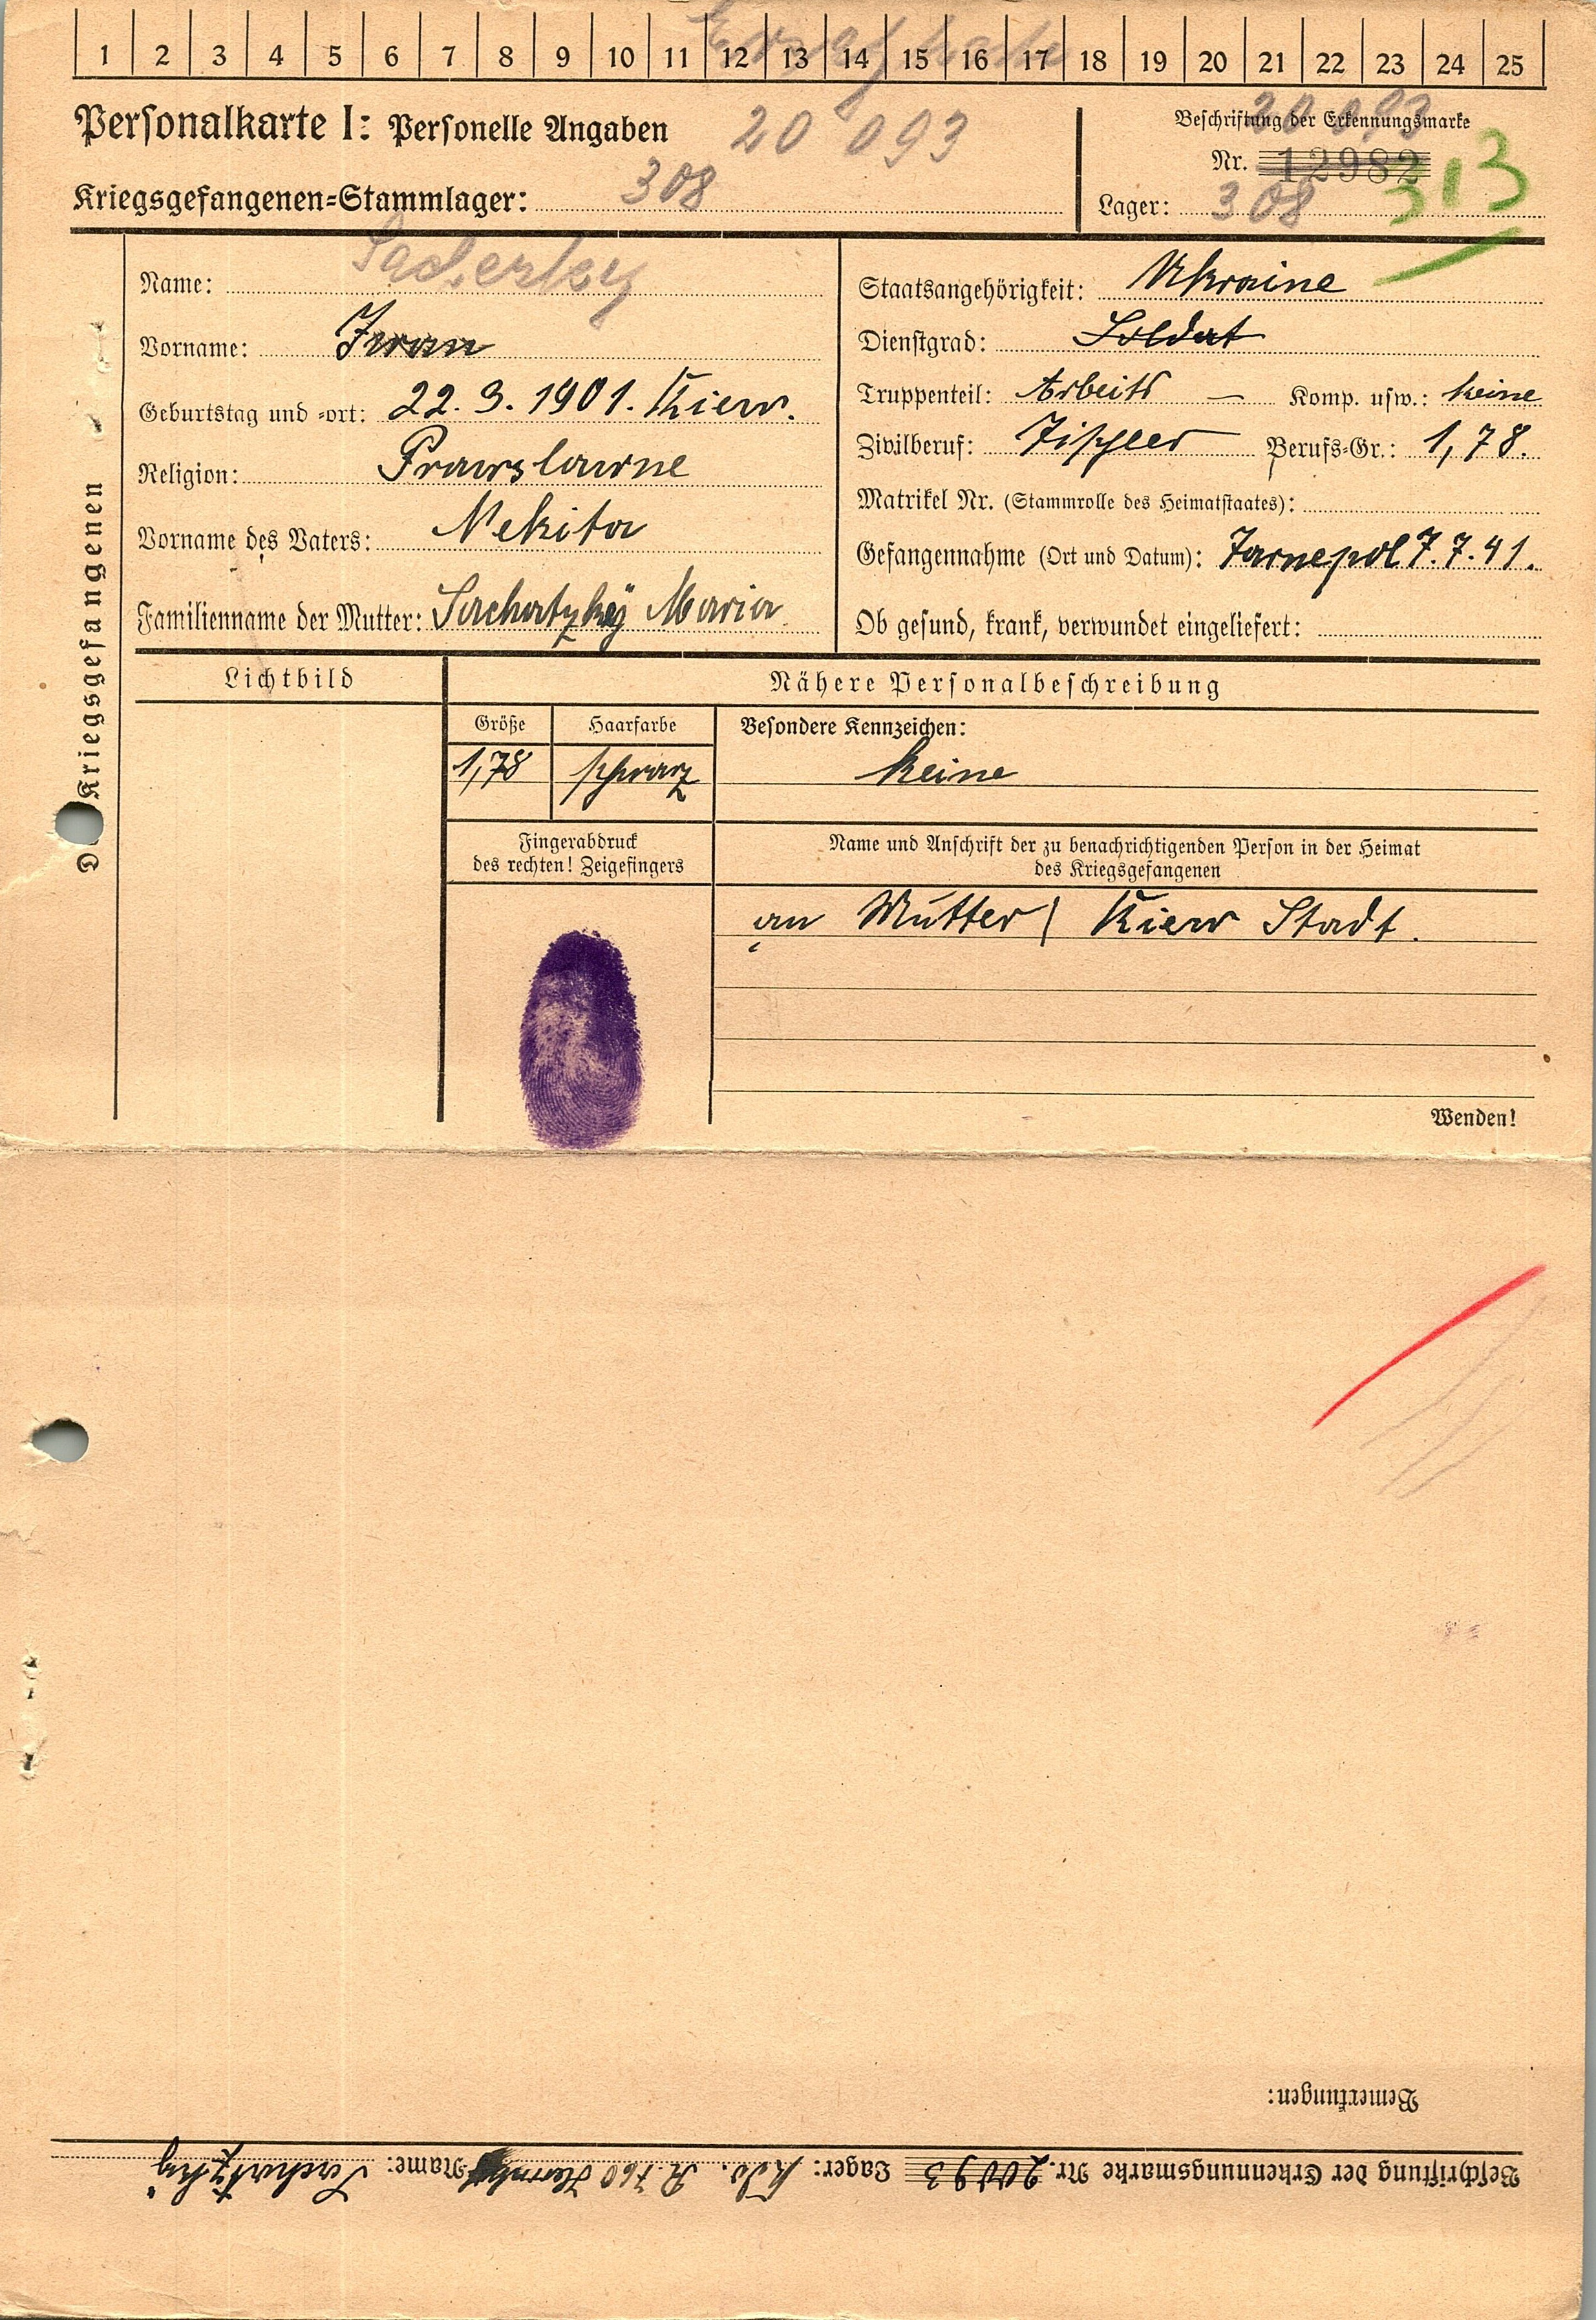 1 2 3 4 5 6 7 8 9 10 11 12 13 14 15 16 17 18 19 20 21 22 23 24 25
Personalkarte I: Personelle Angaben 20 093
Kriegsgefangenen=Stammlager: 308
Beschriftung der Erkennungsmarke
20 093
Nr. 12982
Lager: 308
313
Des Kriegsgefangenen
Name:
Vorname: Iwan
Geburtstag und =ort: 22. 3. 1901. Kiew.
Religion: Prawslawne
Vorname des Vaters: Nekita
Familienname der Mutter: Sachatzkÿ Maria
Staatsangehörigkeit: Ukraine
Dienstgrad: Soldat
Truppenteil: Arbeits — Komp. usw.: keine
Zivilberuf: Tischler Berufs=Gr.: 1,78.
Matrikel Nr. (Stammrolle des Heimatstaates):
Gefangennahme (Ort und Datum): Tarnepol 7.7.41.
Ob gesund, krank, verwundet eingeliefert:
Lichtbild
Nähere Personalbeschreibung
Größe Haarfarbe
1,78 schwarz
Besondere Kennzeichen:
keine
Fingerabdruck
des rechten! Zeigefingers
Name und Anschrift der zu benachrichtigenden Person in der Heimat
des Kriegsgefangenen
an Mutter / Kiew Stadt.
Wenden!
Bemerkungen:
Beschriftung der Erkennungsmarke Nr. 20093 Lager: Name: Sachatzky